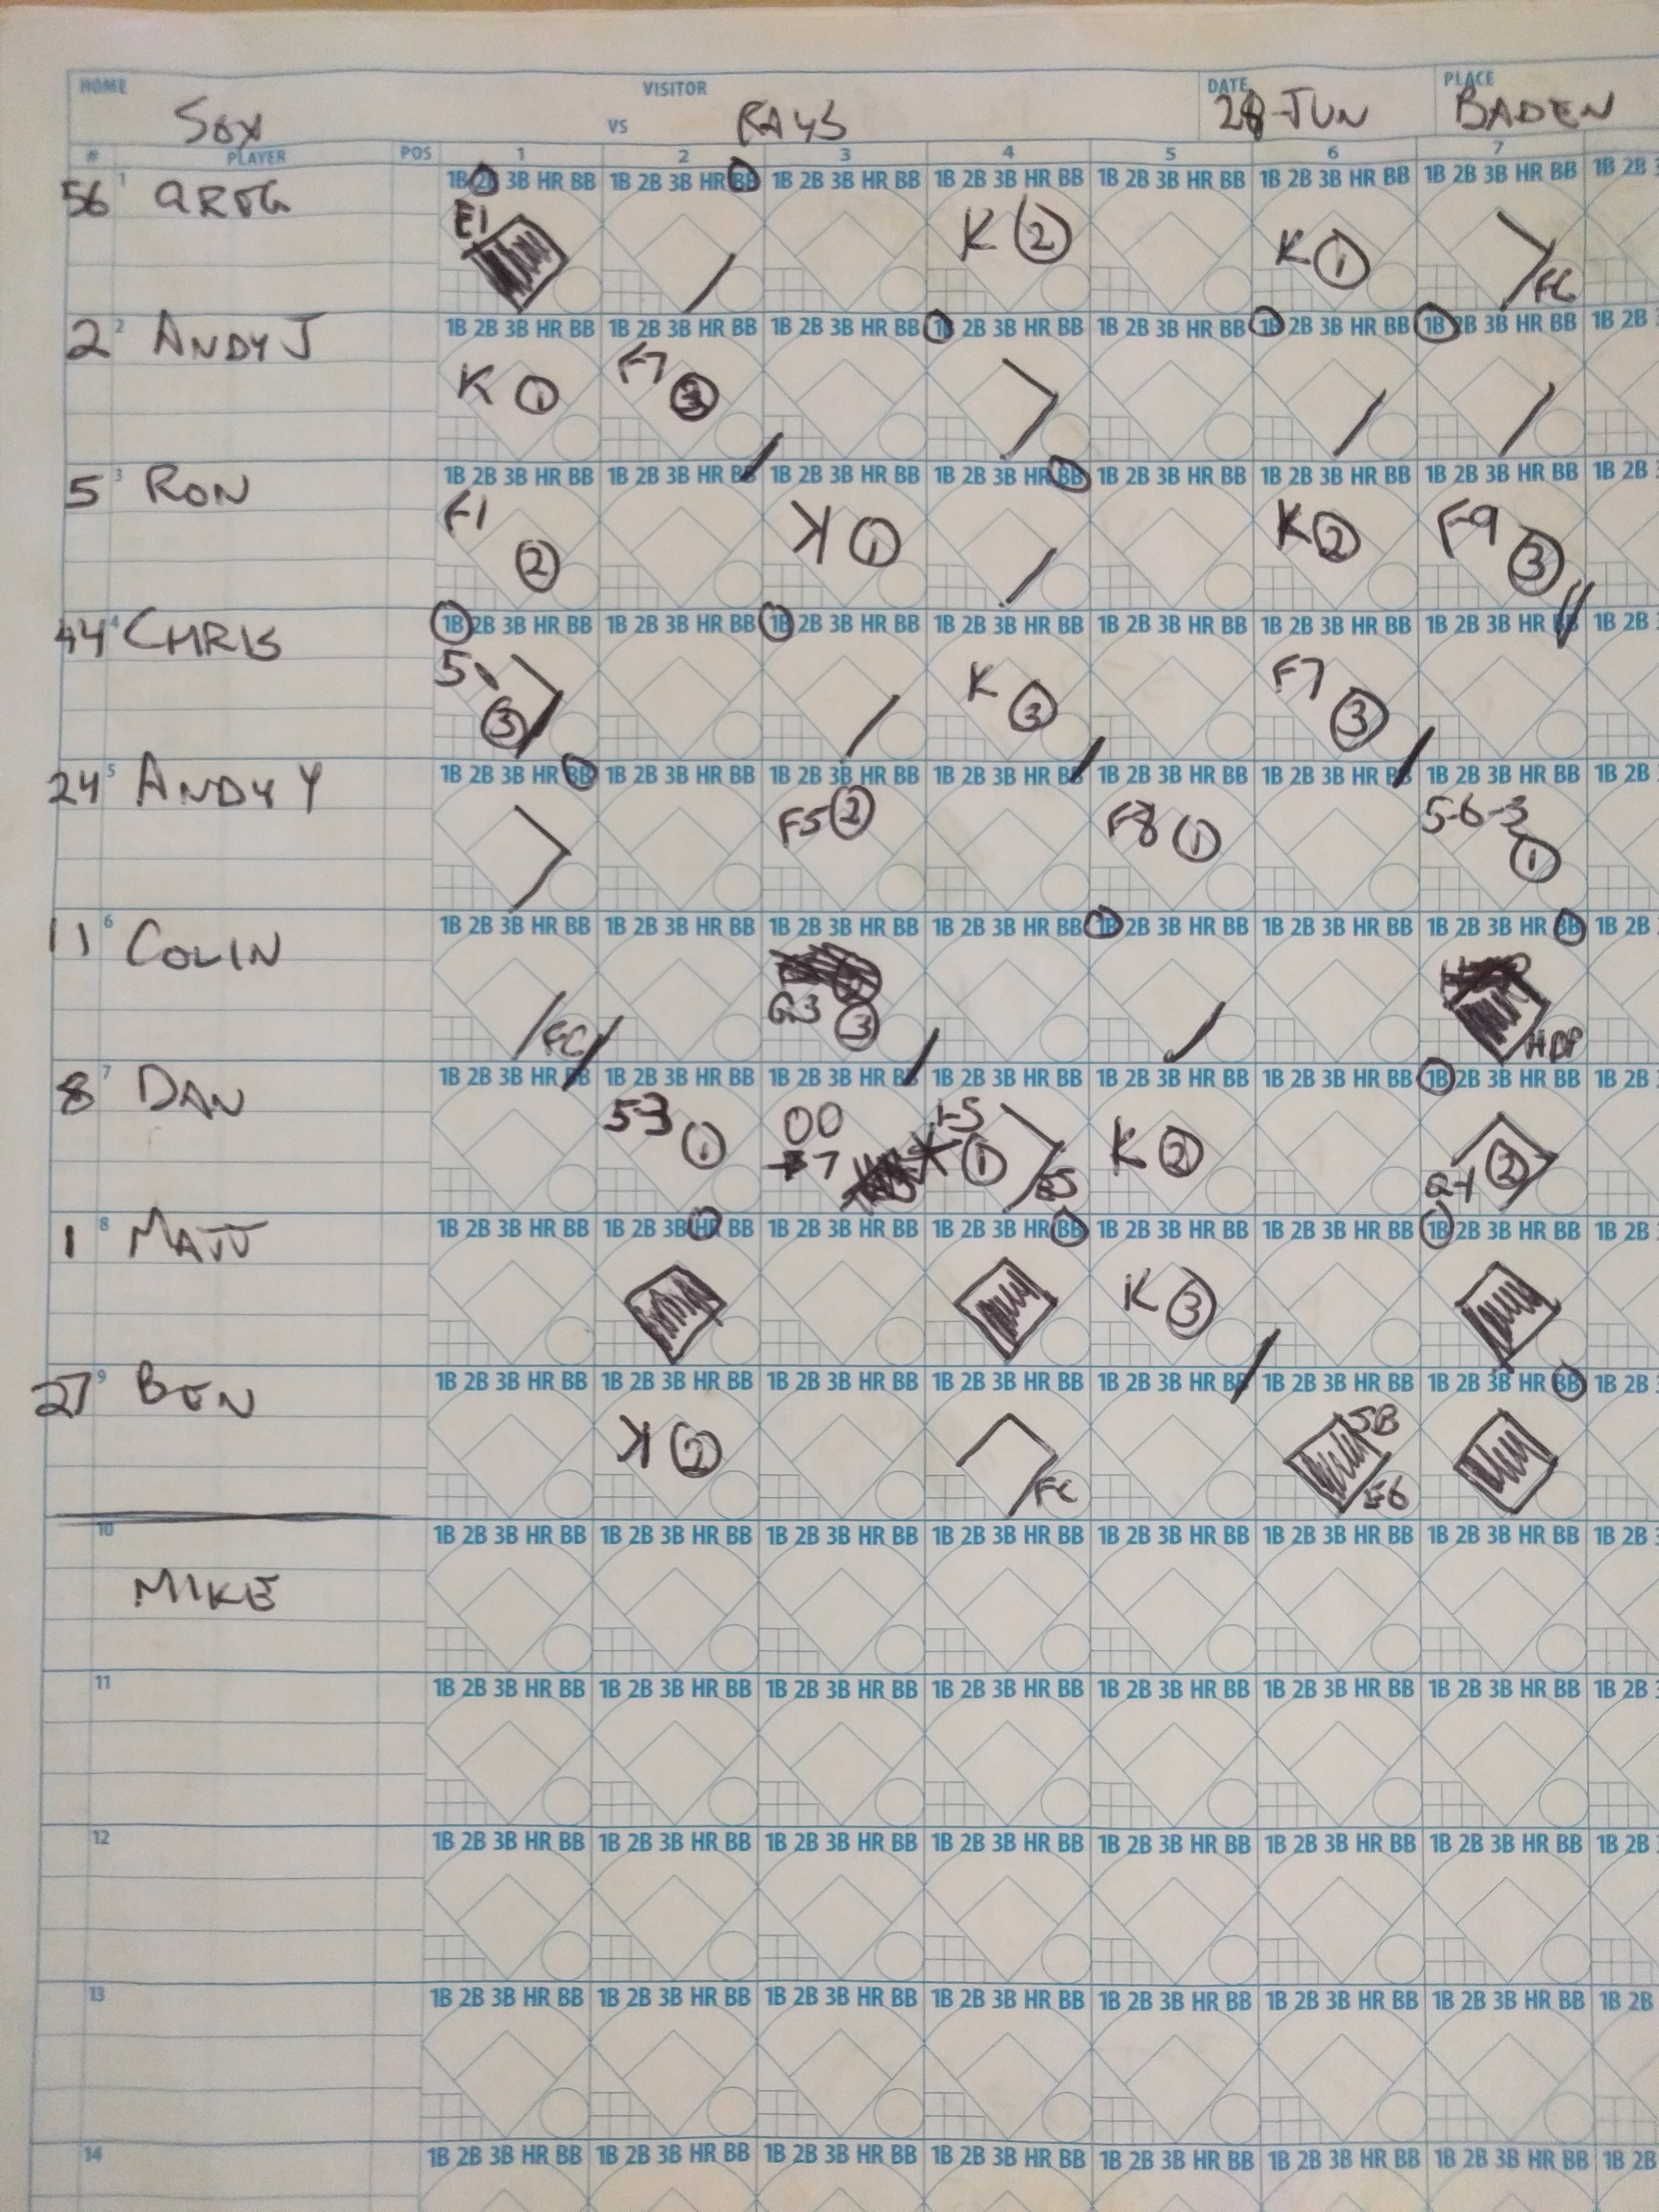 HOME VISITOR DATE PLACE
SOX VS RAYS 28-JUN BADEN
# PLAYER POS 1 2 3 4 5 6 7
1B 2B 3B HR BB 1B 2B 3B HR BB 1B 2B 3B HR BB 1B 2B 3B HR BB 1B 2B 3B HR BB 1B 2B 3B HR BB 1B 2B 3B HR BB 1B 2B
56 1 GREG E1 K 2 K 1 FC
1B 2B 3B HR BB 1B 2B 3B HR BB 1B 2B 3B HR BB 1B 2B 3B HR BB 1B 2B 3B HR BB 1B 2B 3B HR BB 1B 2B 3B HR BB 1B 2B
2 2 ANDY J K 1 F7 3
1B 2B 3B HR BB 1B 2B 3B HR BB 1B 2B 3B HR BB 1B 2B 3B HR BB 1B 2B 3B HR BB 1B 2B 3B HR BB 1B 2B 3B HR BB 1B 2B
5 3 RON F1 2 K 1 K 2 F9 3
1B 2B 3B HR BB 1B 2B 3B HR BB 1B 2B 3B HR BB 1B 2B 3B HR BB 1B 2B 3B HR BB 1B 2B 3B HR BB 1B 2B 3B HR BB 1B 2B
44 4 CHRIS 5- 3 K 3 F7 3
1B 2B 3B HR BB 1B 2B 3B HR BB 1B 2B 3B HR BB 1B 2B 3B HR BB 1B 2B 3B HR BB 1B 2B 3B HR BB 1B 2B 3B HR BB 1B 2B
24 5 ANDY Y F5 2 F8 1 5-6-3 1
1B 2B 3B HR BB 1B 2B 3B HR BB 1B 2B 3B HR BB 1B 2B 3B HR BB 1B 2B 3B HR BB 1B 2B 3B HR BB 1B 2B 3B HR BB 1B 2B
11 6 COLIN FC G3 3 HBP
1B 2B 3B HR BB 1B 2B 3B HR BB 1B 2B 3B HR BB 1B 2B 3B HR BB 1B 2B 3B HR BB 1B 2B 3B HR BB 1B 2B 3B HR BB 1B 2B
8 7 DAN 53 1 OO 7 1-5 1 K 2 2
1B 2B 3B HR BB 1B 2B 3B HR BB 1B 2B 3B HR BB 1B 2B 3B HR BB 1B 2B 3B HR BB 1B 2B 3B HR BB 1B 2B 3B HR BB 1B 2B
1 8 MATT K 3
1B 2B 3B HR BB 1B 2B 3B HR BB 1B 2B 3B HR BB 1B 2B 3B HR BB 1B 2B 3B HR BB 1B 2B 3B HR BB 1B 2B 3B HR BB 1B 2B
27 9 BEN K 2 FC SB E6
10 1B 2B 3B HR BB 1B 2B 3B HR BB 1B 2B 3B HR BB 1B 2B 3B HR BB 1B 2B 3B HR BB 1B 2B 3B HR BB 1B 2B 3B HR BB 1B 2B
MIKE
11 1B 2B 3B HR BB 1B 2B 3B HR BB 1B 2B 3B HR BB 1B 2B 3B HR BB 1B 2B 3B HR BB 1B 2B 3B HR BB 1B 2B 3B HR BB 1B 2B
12 1B 2B 3B HR BB 1B 2B 3B HR BB 1B 2B 3B HR BB 1B 2B 3B HR BB 1B 2B 3B HR BB 1B 2B 3B HR BB 1B 2B 3B HR BB 1B 2B
13 1B 2B 3B HR BB 1B 2B 3B HR BB 1B 2B 3B HR BB 1B 2B 3B HR BB 1B 2B 3B HR BB 1B 2B 3B HR BB 1B 2B 3B HR BB 1B 2B
14 1B 2B 3B HR BB 1B 2B 3B HR BB 1B 2B 3B HR BB 1B 2B 3B HR BB 1B 2B 3B HR BB 1B 2B 3B HR BB 1B 2B 3B HR BB 1B 2B